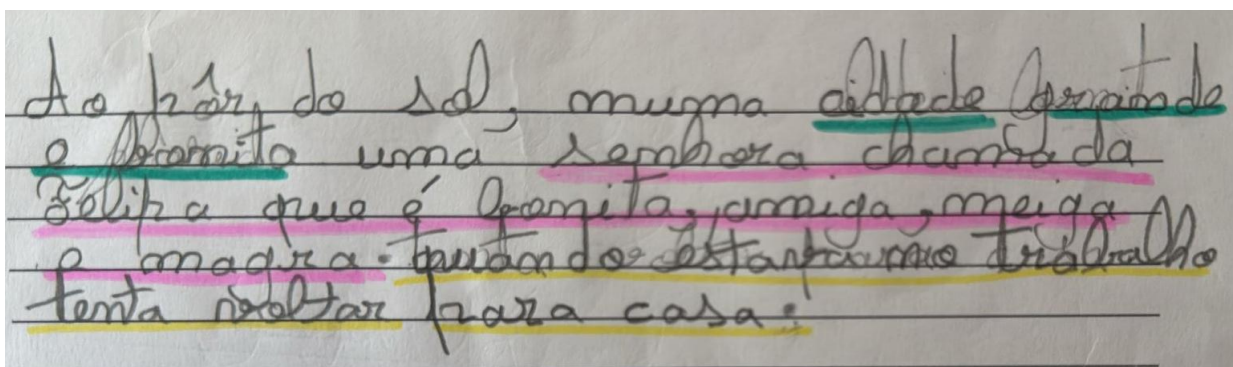 Ao pôr do sol, numa cidade grande
e bonita uma senhora chamada
Zélipa que é bonita, amiga, meiga
e magra. Quando estava no trabalho
tenta voltar para casa.